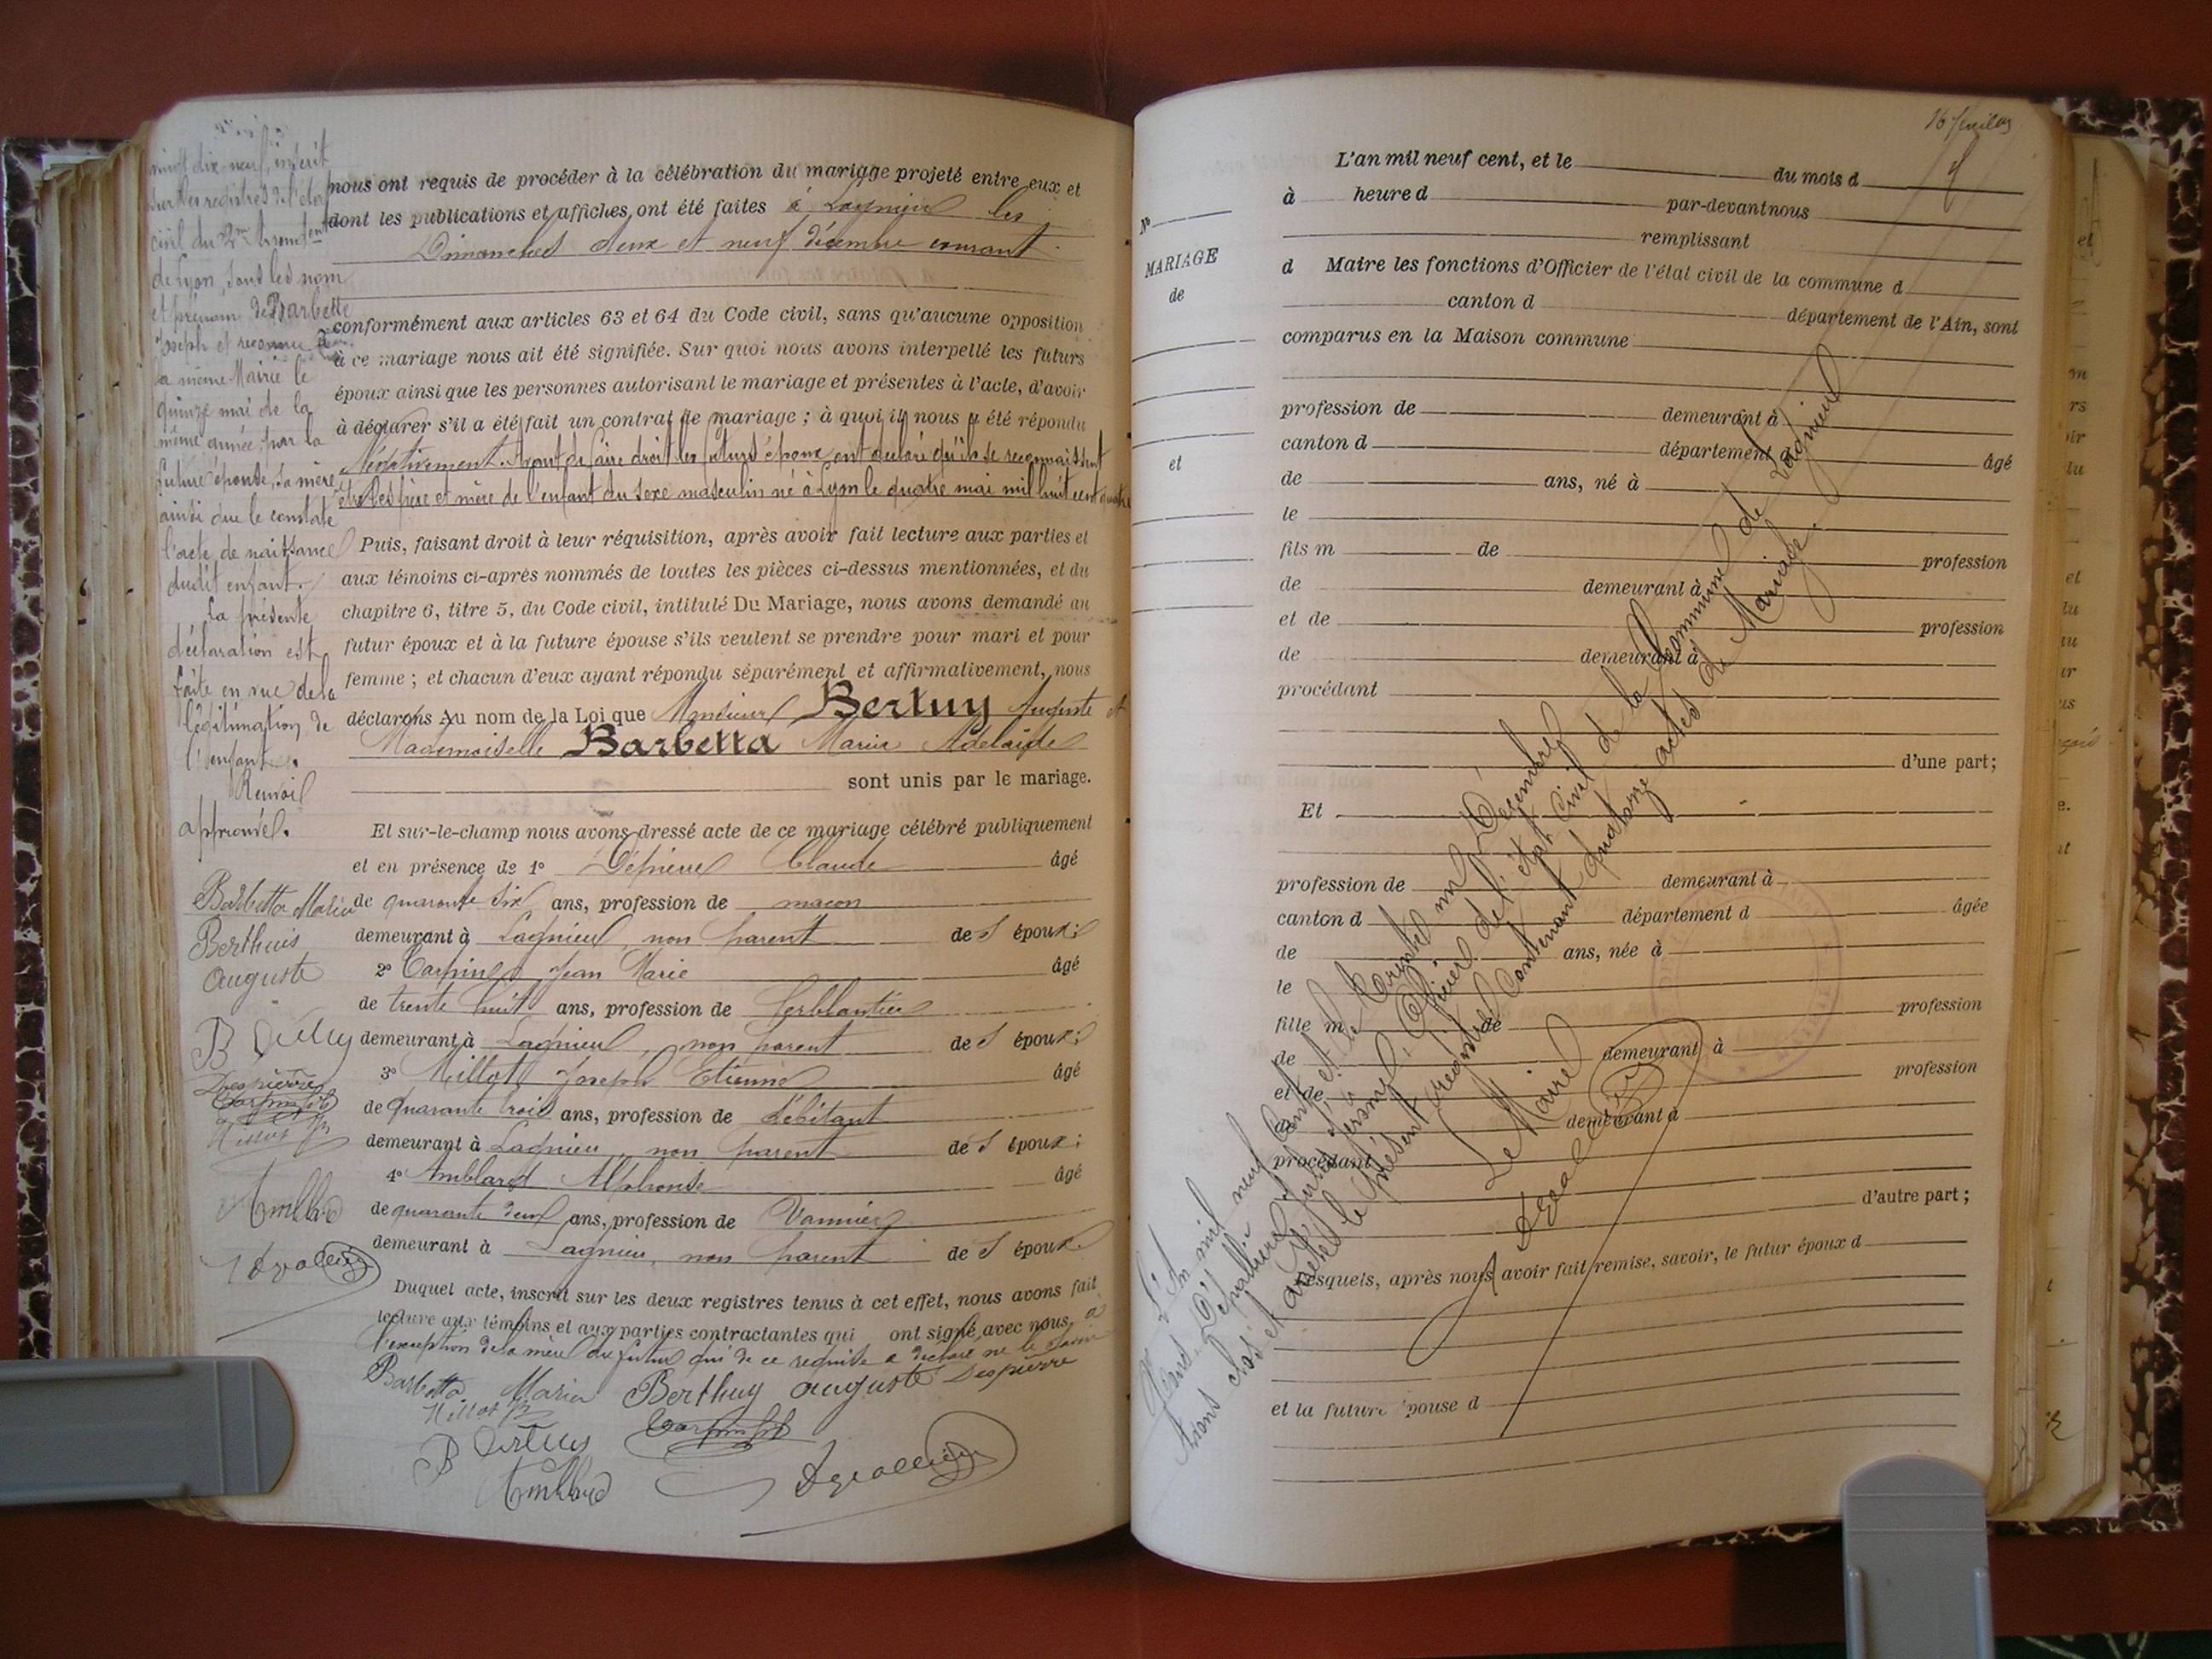 nous ont requis de procéder à la célébration du mariage projeté entre eux et
dont les publications et affiches, ont été faites à Lagnieu les
Dimanches deux et neuf décembre courant.
conformément aux articles 63 et 64 du Code civil, sans qu'aucune opposition
à ce mariage nous ait été signifiée. Sur quoi nous avons interpellé les futurs
époux ainsi que les personnes autorisant le mariage et présentes à l'acte, d'avoir
à déclarer s'il a été fait un contrat de mariage ; à quoi ils nous a été répondu
Négativement. Avant de faire droit les futurs époux ont déclaré qu'ils se reconnaissent
être les père et mère de l'enfant du sexe masculin né à Lyon le quatre mai mil huit cent quatre
vingt dix neuf, inscrit
sur les registres de l'état
civil du 2me arrondent
de Lyon, sous les nom
et prénom de Barbetta
Joseph et reconnu à
la même Mairie le
quinze mai de la
même année, par la
future épouse, sa mère,
ainsi que le constate
l'acte de naissance
dudit enfant.
La présente
déclaration est
faite en vue de la
légitimation de
l'enfant.
Renvoi
approuvé.
Barbetta Maria
Berthuis
Auguste
Despierre
Amblard
Puis, faisant droit à leur réquisition, après avoir fait lecture aux parties et
aux témoins ci-après nommés de toutes les pièces ci-dessus mentionnées, et du
chapitre 6, titre 5, du Code civil, intitulé Du Mariage, nous avons demandé au
futur époux et à la future épouse s'ils veulent se prendre pour mari et pour
femme ; et chacun d'eux ayant répondu séparément et affirmativement, nous
déclarons Au nom de la Loi que Monsieur Bertuy Auguste et
Mademoiselle Barbetta Maria Adelaïde
sont unis par le mariage.
Et sur-le-champ nous avons dressé acte de ce mariage célébré publiquement
et en présence de 1° Dépierre Claude âgé
de quarante six ans, profession de maçon
demeurant à Lagnieu, non parent de s époux;
2° Carpin Jean Marie âgé
de trente huit ans, profession de ferblantier
demeurant à Lagnieu, non parent de s époux;
3° Millot Joseph Etienne âgé
de quarante trois ans, profession de Débitant
demeurant à Lagnieu, non parent de s époux;
4° Amblard Alphonse âgé
de quarante deux ans, profession de Vannier
demeurant à Lagnieu, non parent de s époux.
Duquel acte, inscrit sur les deux registres tenus à cet effet, nous avons fait
lecture aux témoins et aux parties contractantes qui ont signé avec nous, à
l'exception de la mère du futur qui de ce requise a déclaré ne le savoir
Barbetta Maria Berthuy Auguste Despierre
Millot
Bertuy
Amblard
L'an mil neuf cent, et le du mois d
à heure d par-devant nous
remplissant
d Maire les fonctions d'Officier de l'état civil de la commune d
canton d département de l'Ain, sont
comparus en la Maison commune
N°
MARIAGE
de
et
profession de demeurant à
canton d département d âgé
de ans, né à
le
fils m de profession
de demeurant à
et de profession
de demeurant à
procédant
d'une part;
Et
profession de demeurant à
canton d département d âgée
de ans, née à
le
fille m de profession
de demeurant à
et de profession
de demeurant à
procédant
d'autre part;
Lesquels, après nous avoir fait remise, savoir, le futur époux d
et la future épouse d
L'An mil neuf cent et le trente un Décembre
officier de l'état civil de la Commune de Lagnieu
avons clos et arrêté le présent registre contenant quatorze actes de Mariage.
Le Maire